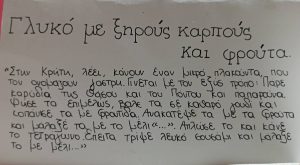 Γλυκό με ξηρούς καρπούς
και φρούτα.
"Στην Κρήτη, λέει, κάνουν έναν μικρό πλακούντα, που
τον ονομάζουν γάστρι. Γίνεται με τον εξής τρόπο: Πάρε
καρύδια της Θάσου και του Πόντου και
Ψήσε τα επιμελώς, βάλε τα σε καθαρό γουδί και
κοπάνισέ τα με φροντίδα. Ανακάτεψέ τα με τα φρούτα
και μάλαξέ τα με το μέλι «...». Άπλωσέ το και κάνε
το τετράγωνο έπειτα τρίψε λευκό σουσάμι και μάλαξέ
το με μέλι..."